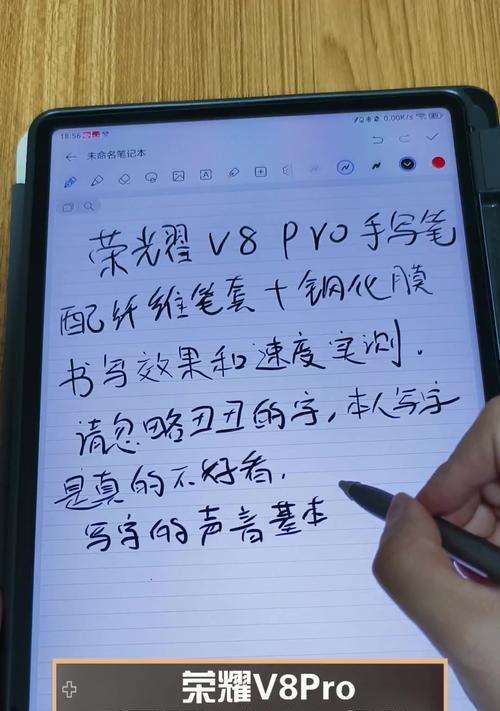 18:56
0.00K/s
未命名笔记本
荣光耀 V8 Pro 手写笔
配纤维笔套+钢化膜
书写效果和速度实测.
请忽略丑丑的字,本人写字
是真的不好看,
写字的声音基本
荣耀V8Pro